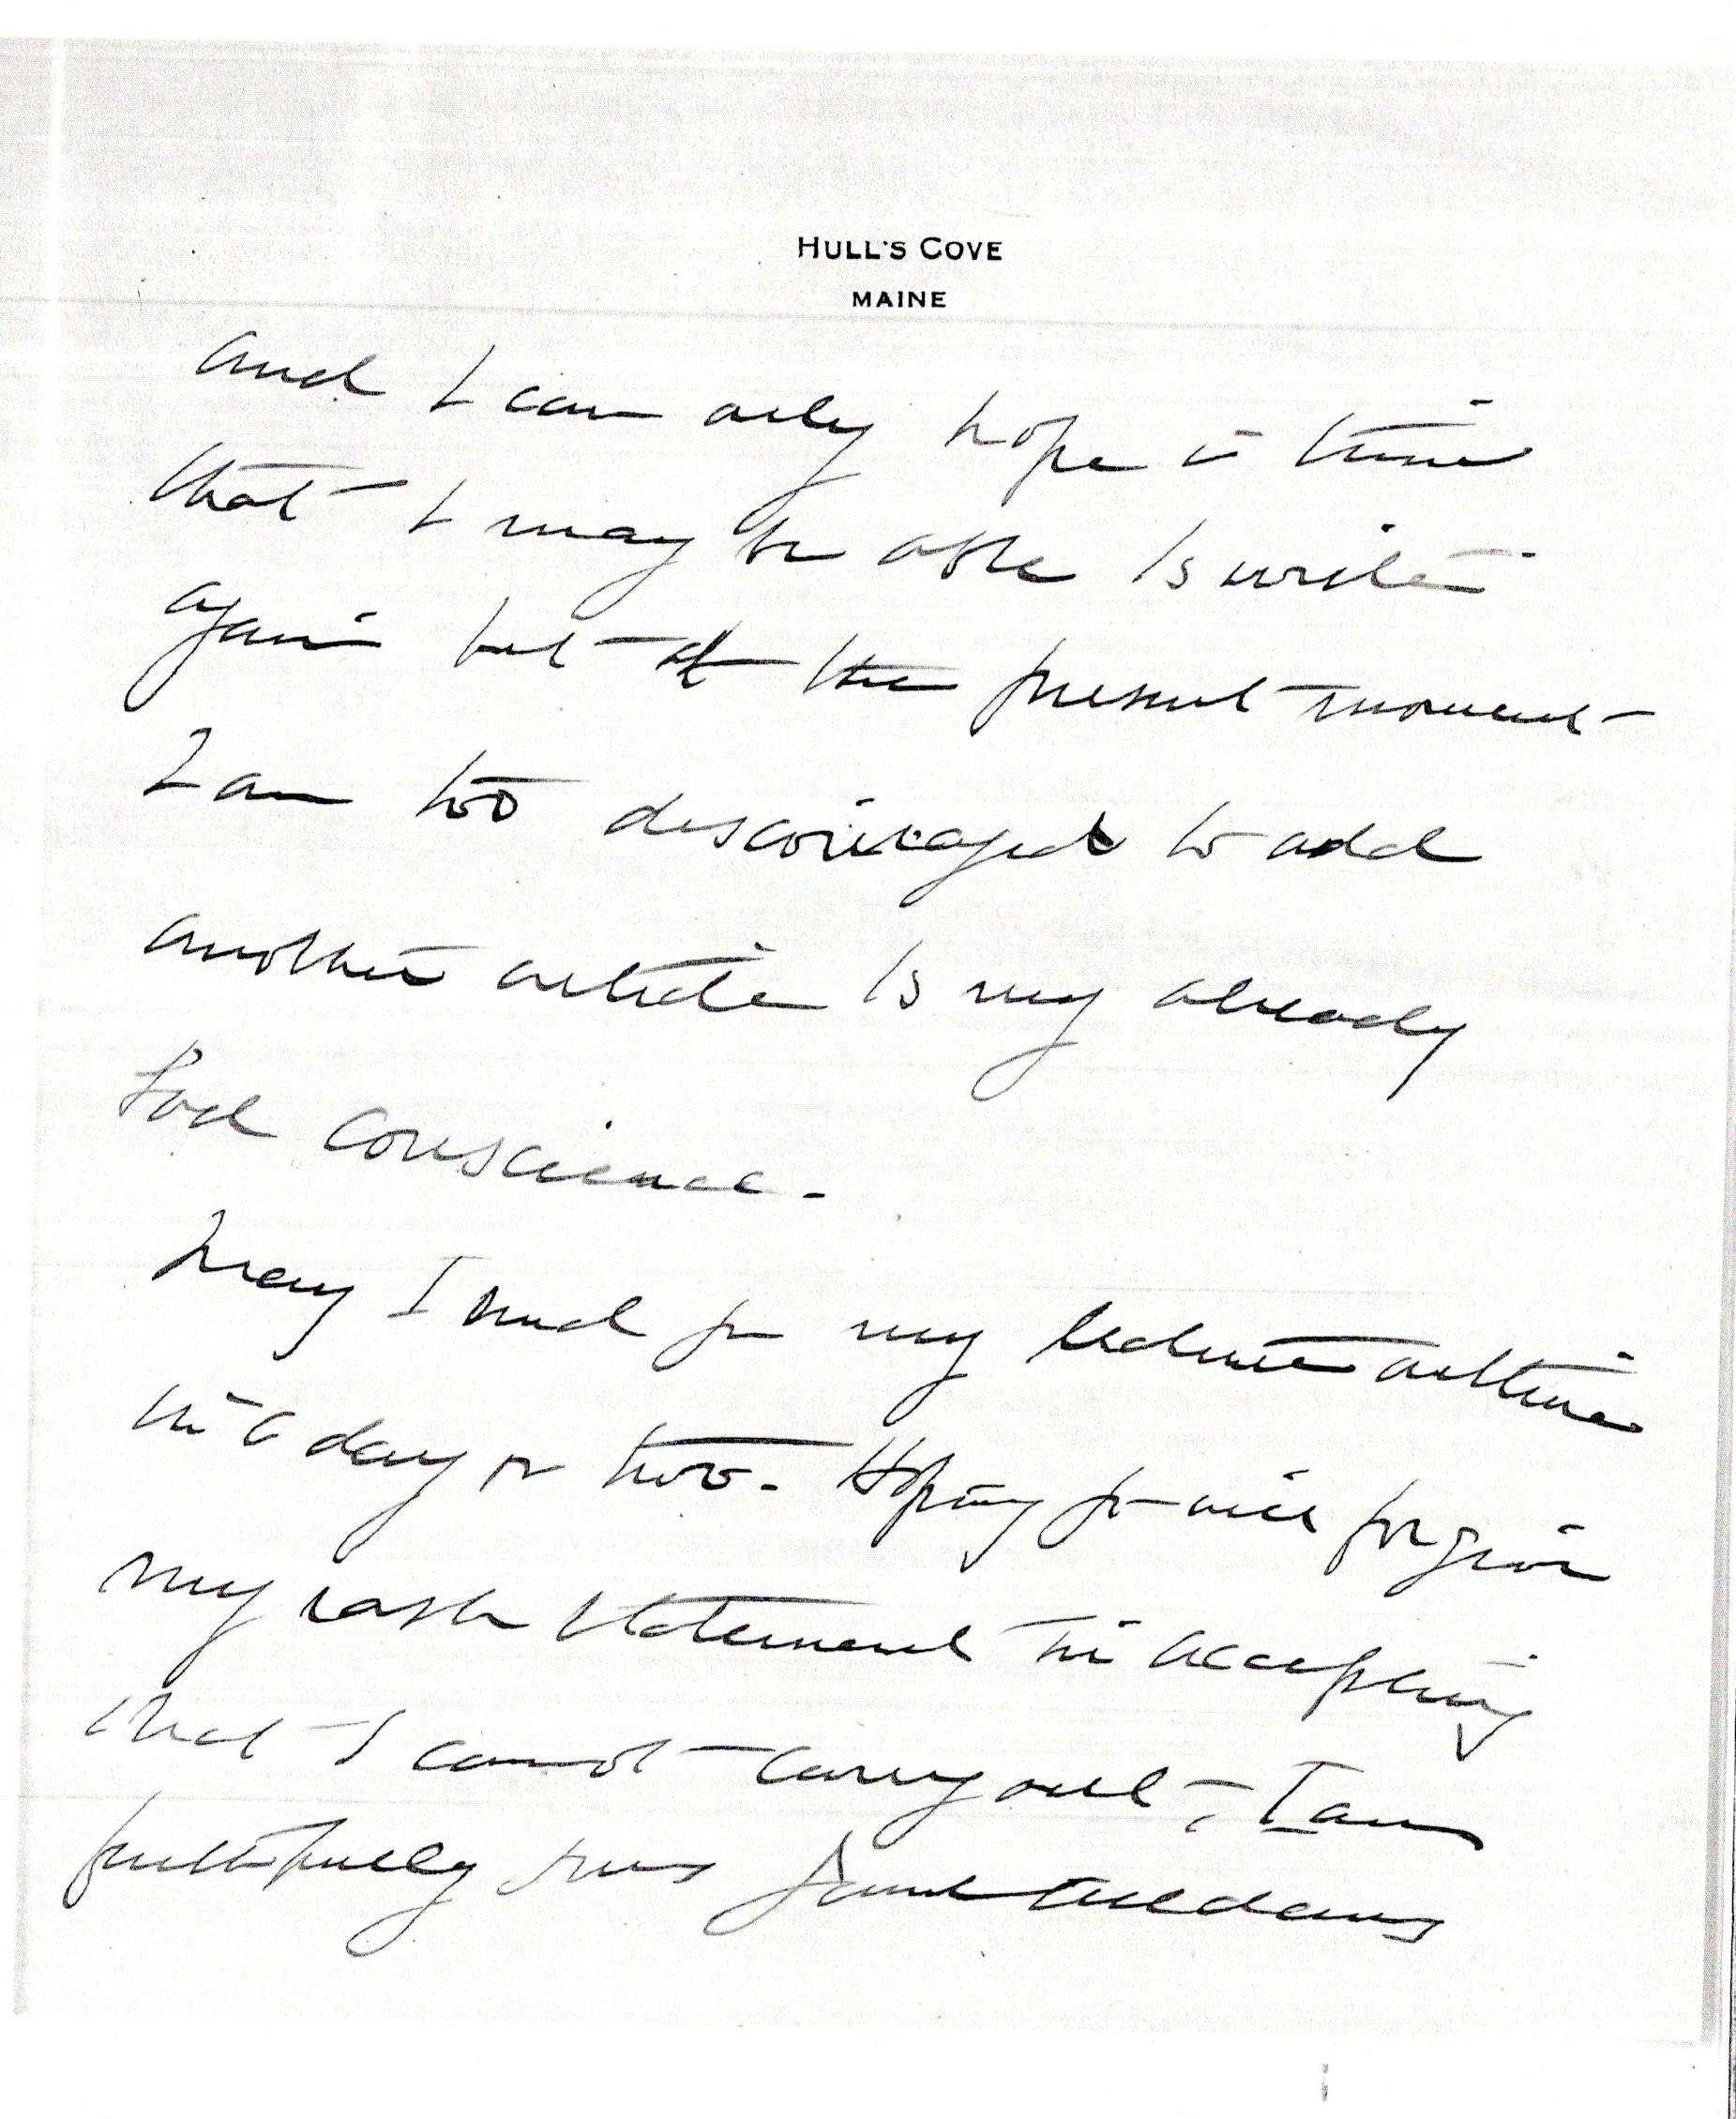 HULL'S COVE
MAINE
and I can only hope in time
that I may be able to write
again but at the present moment
I am too discouraged to add
another article to my already
bad conscience.
May I send you my lecture outline
in a day or two. Hoping you will forgive
my rash statement in accepting
what I cannot carry out, I am
faithfully yours Jane Addams